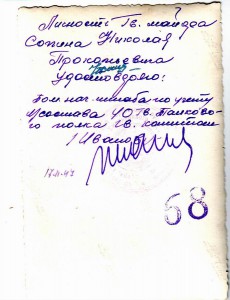 Личность Гв. майора
Сопина Николая
Прокопьевича
Удостоверяю:
Пом нач. штаба по учету
л/состава 40 Гв. Танково-
го полка гв. капитан
/Иванов/
17.11.44
68